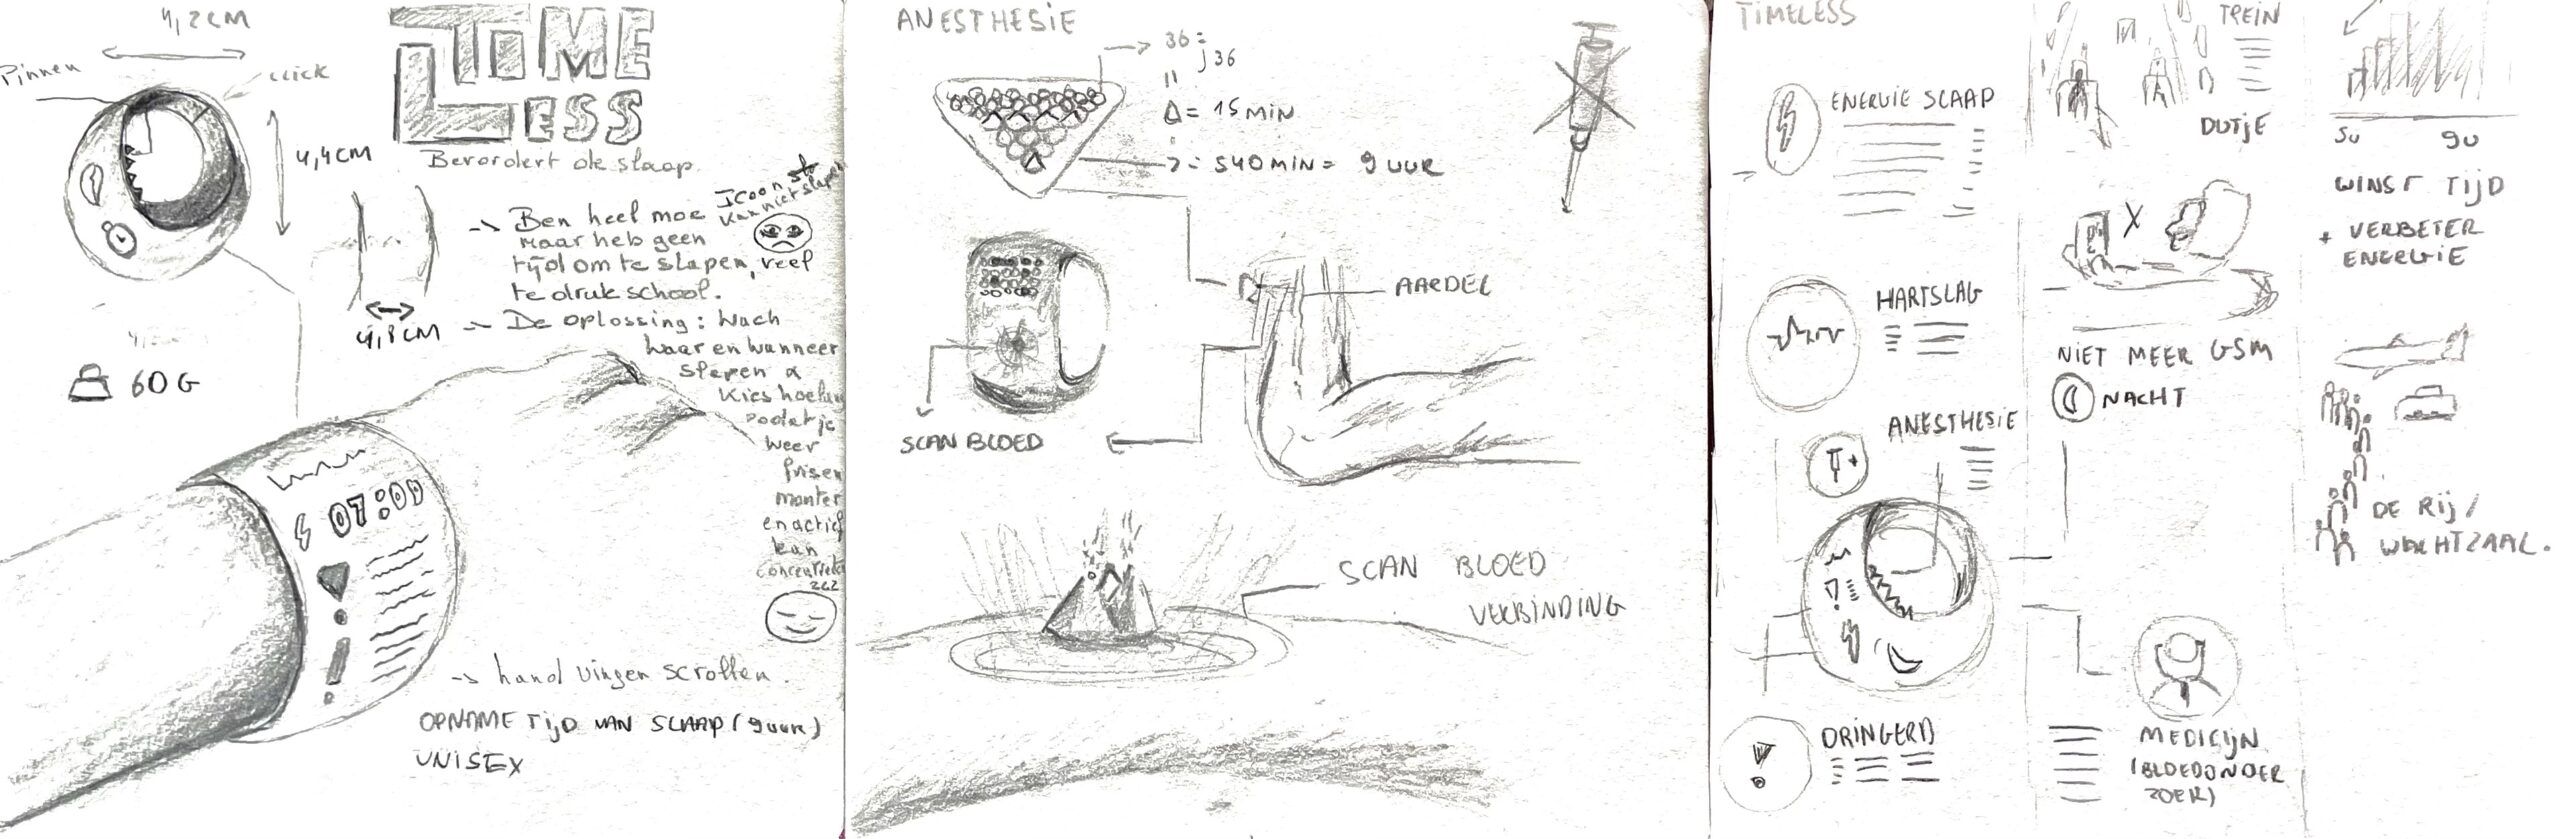 4,2CM
Pinnen
click
4,4CM
60G
TIME
LESS
Bevordert de slaap.
Icoon
kan niet slapen
-> Ben heel moe
maar heb geen
tijd om te slapen, veel
te druk school.
4,8CM
-> De oplossing: Wach
waar en wanneer
slapen &
Kies hoelang
zodat je
weer
frisen
monter
en actief
kan
concentreren
zzz
07:00
-> hand vingen scrollen.
OPNAME TIJD VAN SLAAP (9 uur)
UNISEX
ANESTHESIE
36 =
j36
=
Δ = 15 MIN
-> = 540 MIN = 9 UUR
AARDEL
SCAN BLOED
SCAN BLOED
VERBINDING
TIMELESS
ENERGIE SLAAP
HARTSLAG
ANESTHESIE
DRINGEND
TREIN
DUTJE
X
NIET MEER GSM
NACHT
MEDICIJN
(BLOEDONDER
ZOEK)
5U
9U
WINST TIJD
+ VERBETER
ENERGIE
DE RIJ /
WACHTZAAL.